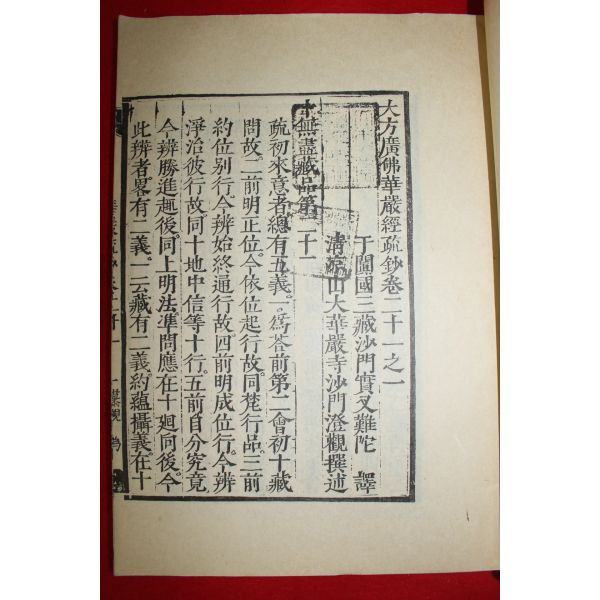 大方廣佛華嚴經疏鈔卷二十一之一
于闐國三藏沙門實叉難陀 譯
清涼山大華嚴寺沙門澄觀撰述
十無盡藏品第二十二
疏初來意者總有五義一爲荅前第二會初十藏
問故二前明正位今依位起行故同梵行品三前
約位別行今辨始終通行故四前明成位行今辨
淨治彼行故同十地中信等十行五前自分究竟
今辨勝進趣後同上明法準問應在十廻向後今
此辨者畧有二義一云藏有二義約蘊攝義在十